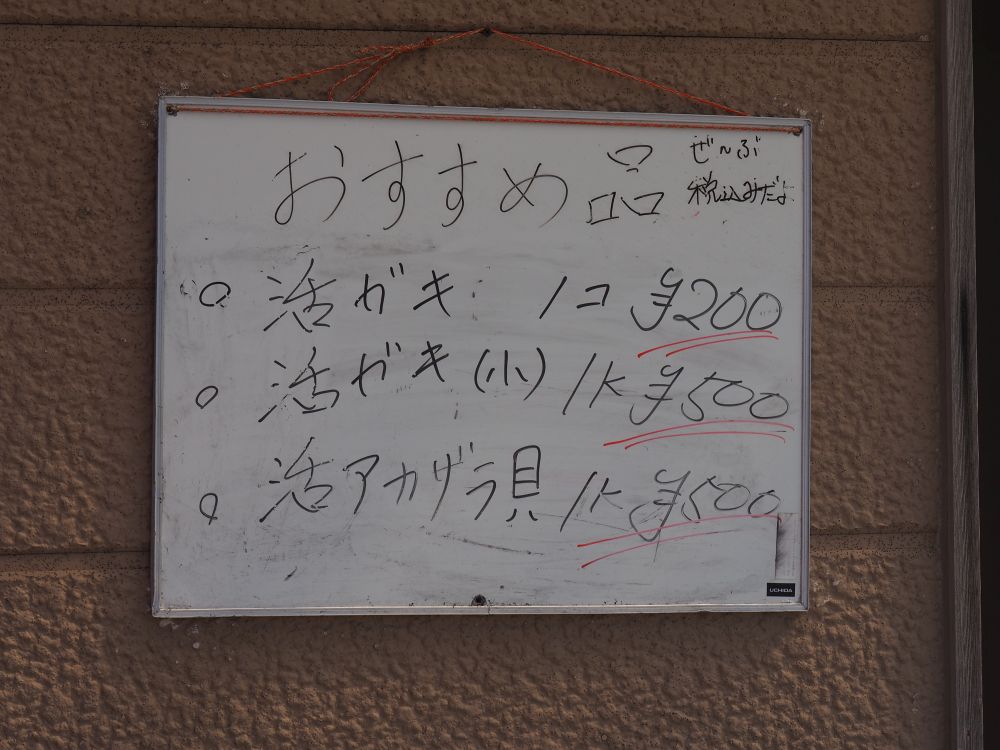 おすすめ品
ぜ〜ぶ
税込みだよ
○ 活ガキ 1コ ¥200
○ 活ガキ(小) 1K ¥500
○ 活アカザラ貝 1K ¥500
UCHIDA